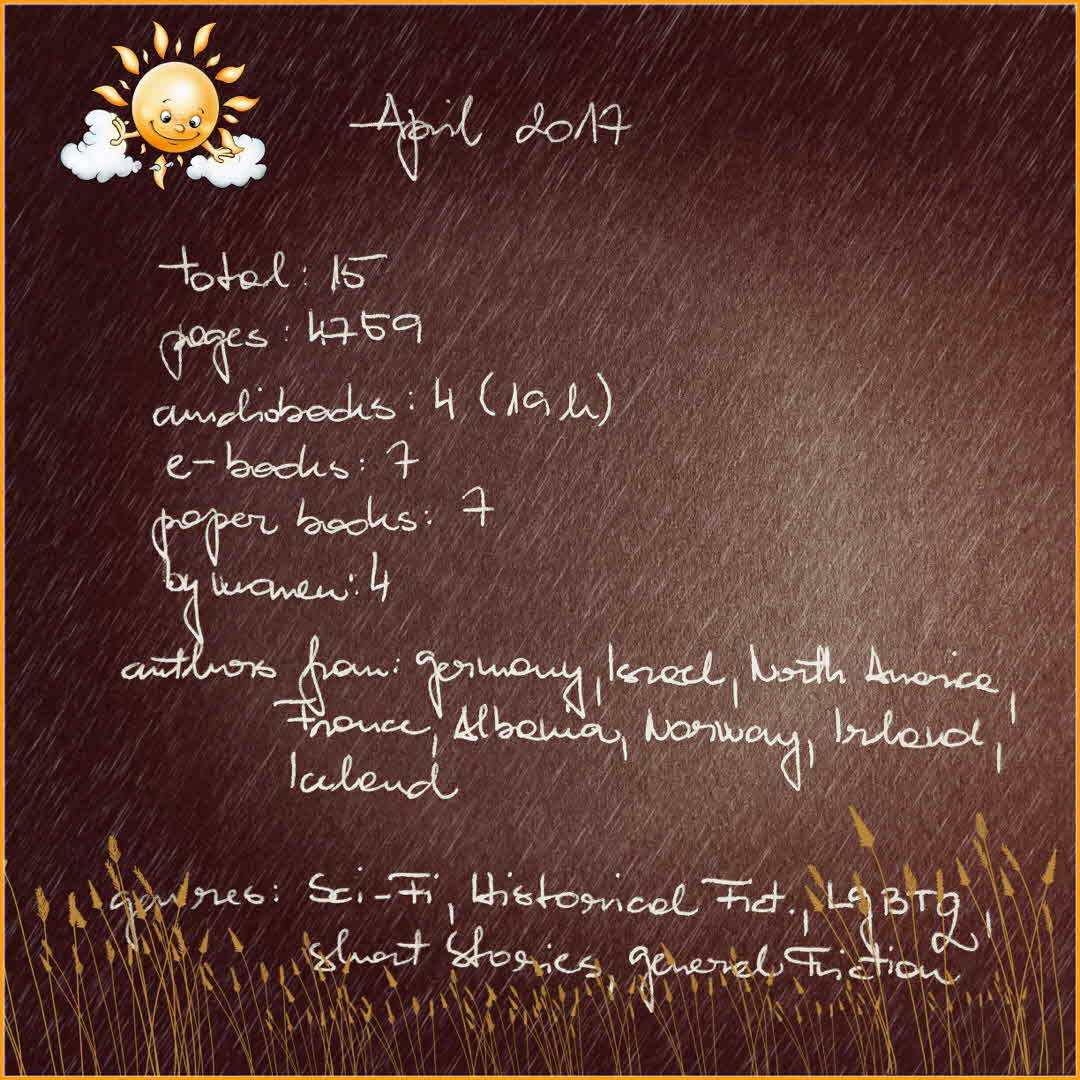 April 2017
total: 15
pages: 4759
audiobooks: 4 (19h)
e-books: 7
paper books: 7
by women: 4
authors from: Germany, Israel, North America,
France, Albania, Norway, Irland,
Iceland
genres: Sci-Fi, Historical Fict., LGBTQ,
short stories, general Friction